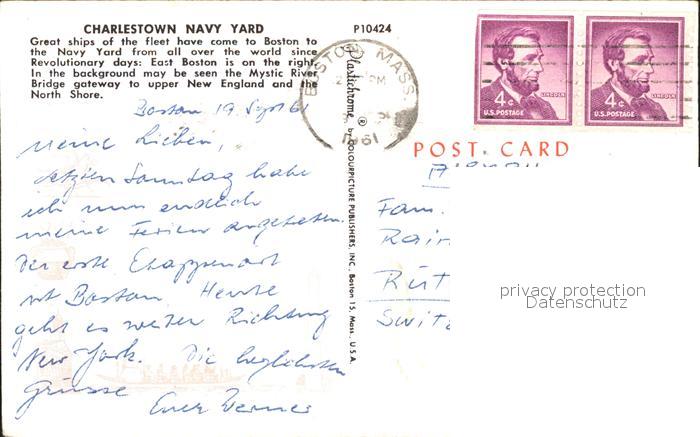 CHARLESTOWN NAVY YARD
P10424
Great ships of the fleet have come to Boston to
the Navy Yard from all over the world since
Revolutionary days: East Boston is on the right.
In the background may be seen the Mystic River
Bridge gateway to upper New England and the
North Shore.
Boston 19. Sept 61
Meine Lieben,
letzten Sonntag habe
ich nun endlich
meine Ferien angetreten.
Der erste Etappenort
ist Boston. Heute
geht es weiter Richtung
New York. Die herzlichsten
Grüsse
Euer Werner
Plastichrome ® by COLOURPICTURE PUBLISHERS, INC., Boston 15, Mass., U.S.A.
BOSTON MASS.
PM
1961
4¢ LINCOLN
U.S. POSTAGE
4¢ LINCOLN
U.S. POSTAGE
POST CARD
Fam.
Rain
Rüt
Switz
privacy protection
Datenschutz